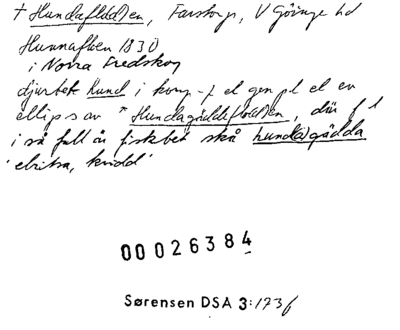 † Hundaflo(d)en, Farstorp, V Göinge hd
Hunnafloen 1830
i Norra Fredskog
djurbet hund i komp.-f el gen pl el en
ellips av * Hundagädde(flod)en, där f l
i så fall är fiskbet skå hund(a)gädda
'elritsa, kvidd'
00026384
Sørensen DSA 3:173f